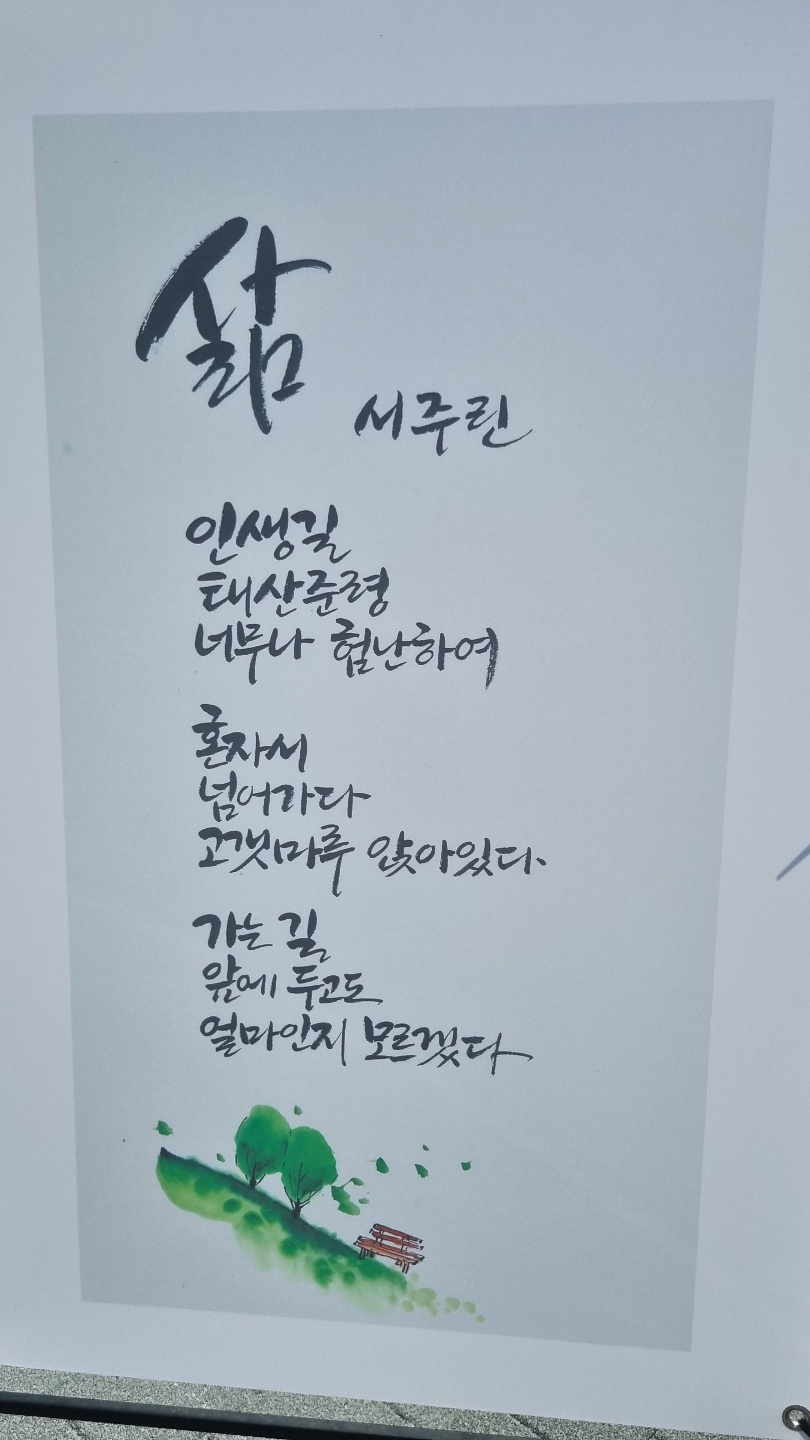 삶
서주린
인생길
태산준령
너무나 험난하여
혼자서
넘어가다
고갯마루 앉아있다.
가는 길
앞에 두고도
얼마인지 모르겠다